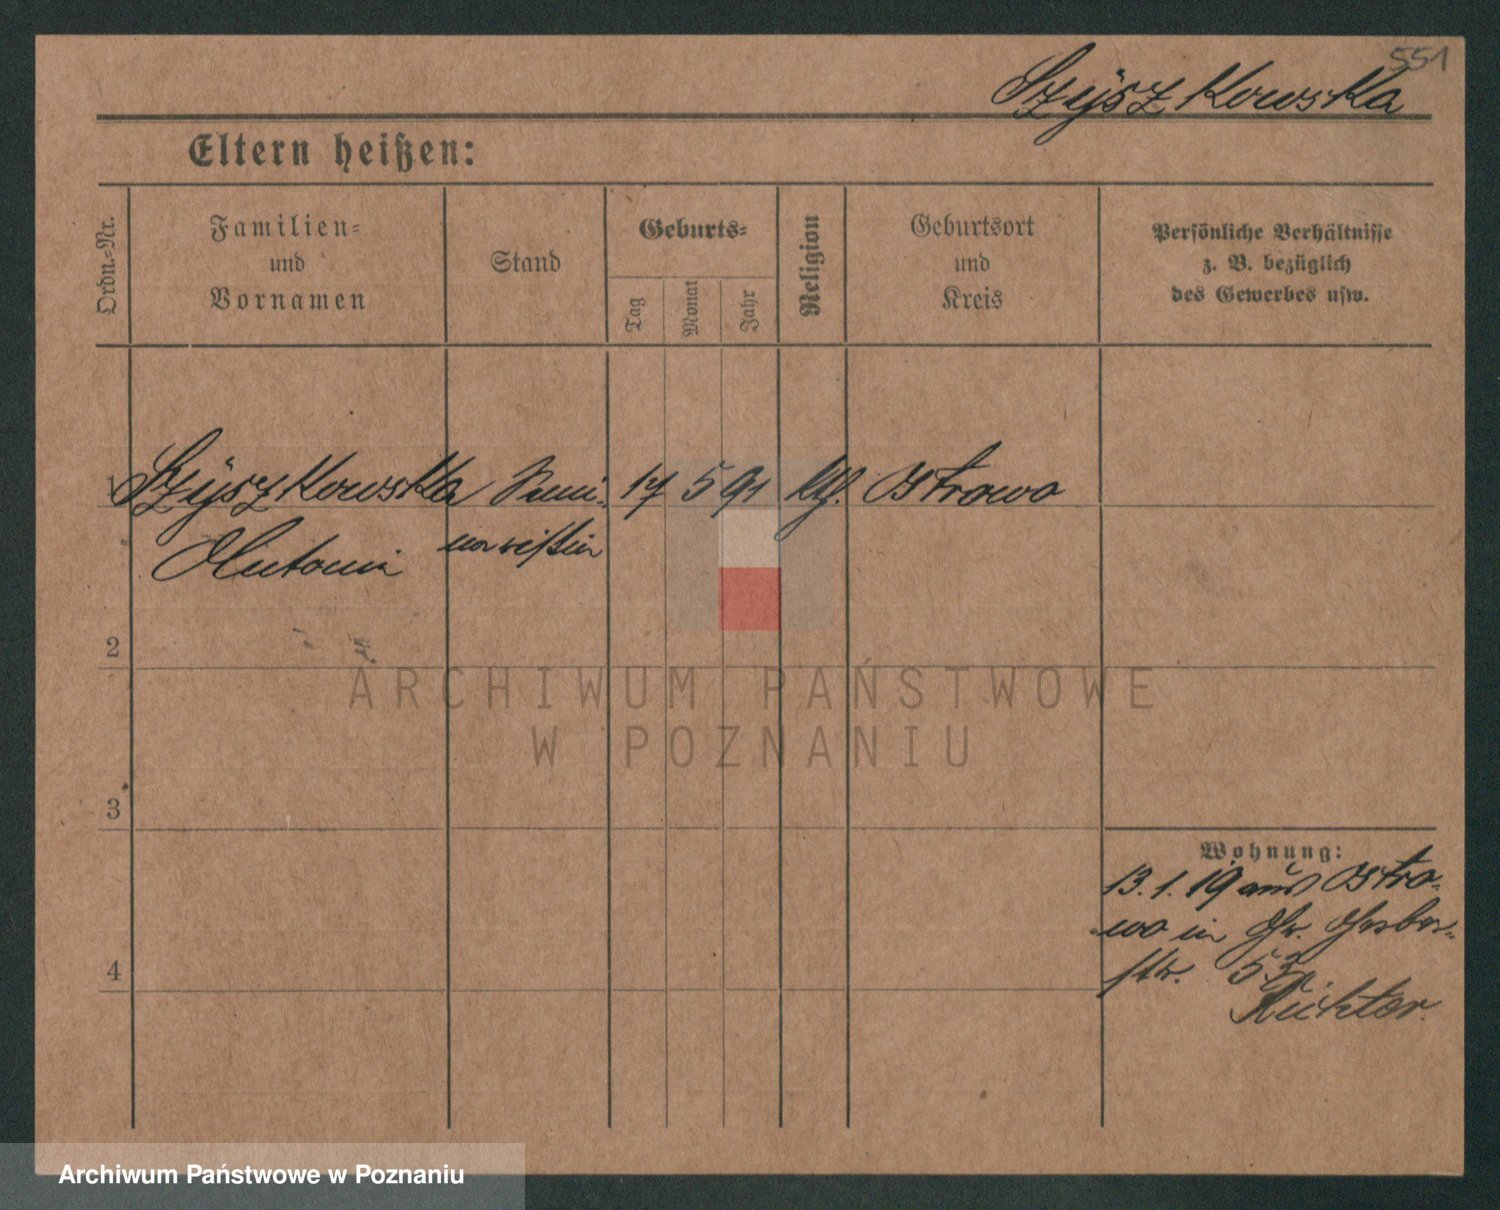 551
Szÿszkowska
Eltern heißen:
Ordn.-Nr.
Familien-
und
Vornamen
Stand
Geburts-
Tag
Monat
Jahr
Religion
Geburtsort
und
Kreis
Persönliche Verhältnisse
z. B. bezüglich
des Gewerbes usw.
1 Szÿszkowska 17 5 91 ktl. Ostrowo
2
ARCHIWUM PAŃSTWOWE
W POZNANIU
3
Wohnung:
13.1.19 aus Ostro-
wo in Gr. Gerber-
str. 52
Richter.
4
Archiwum Państwowe w Poznaniu